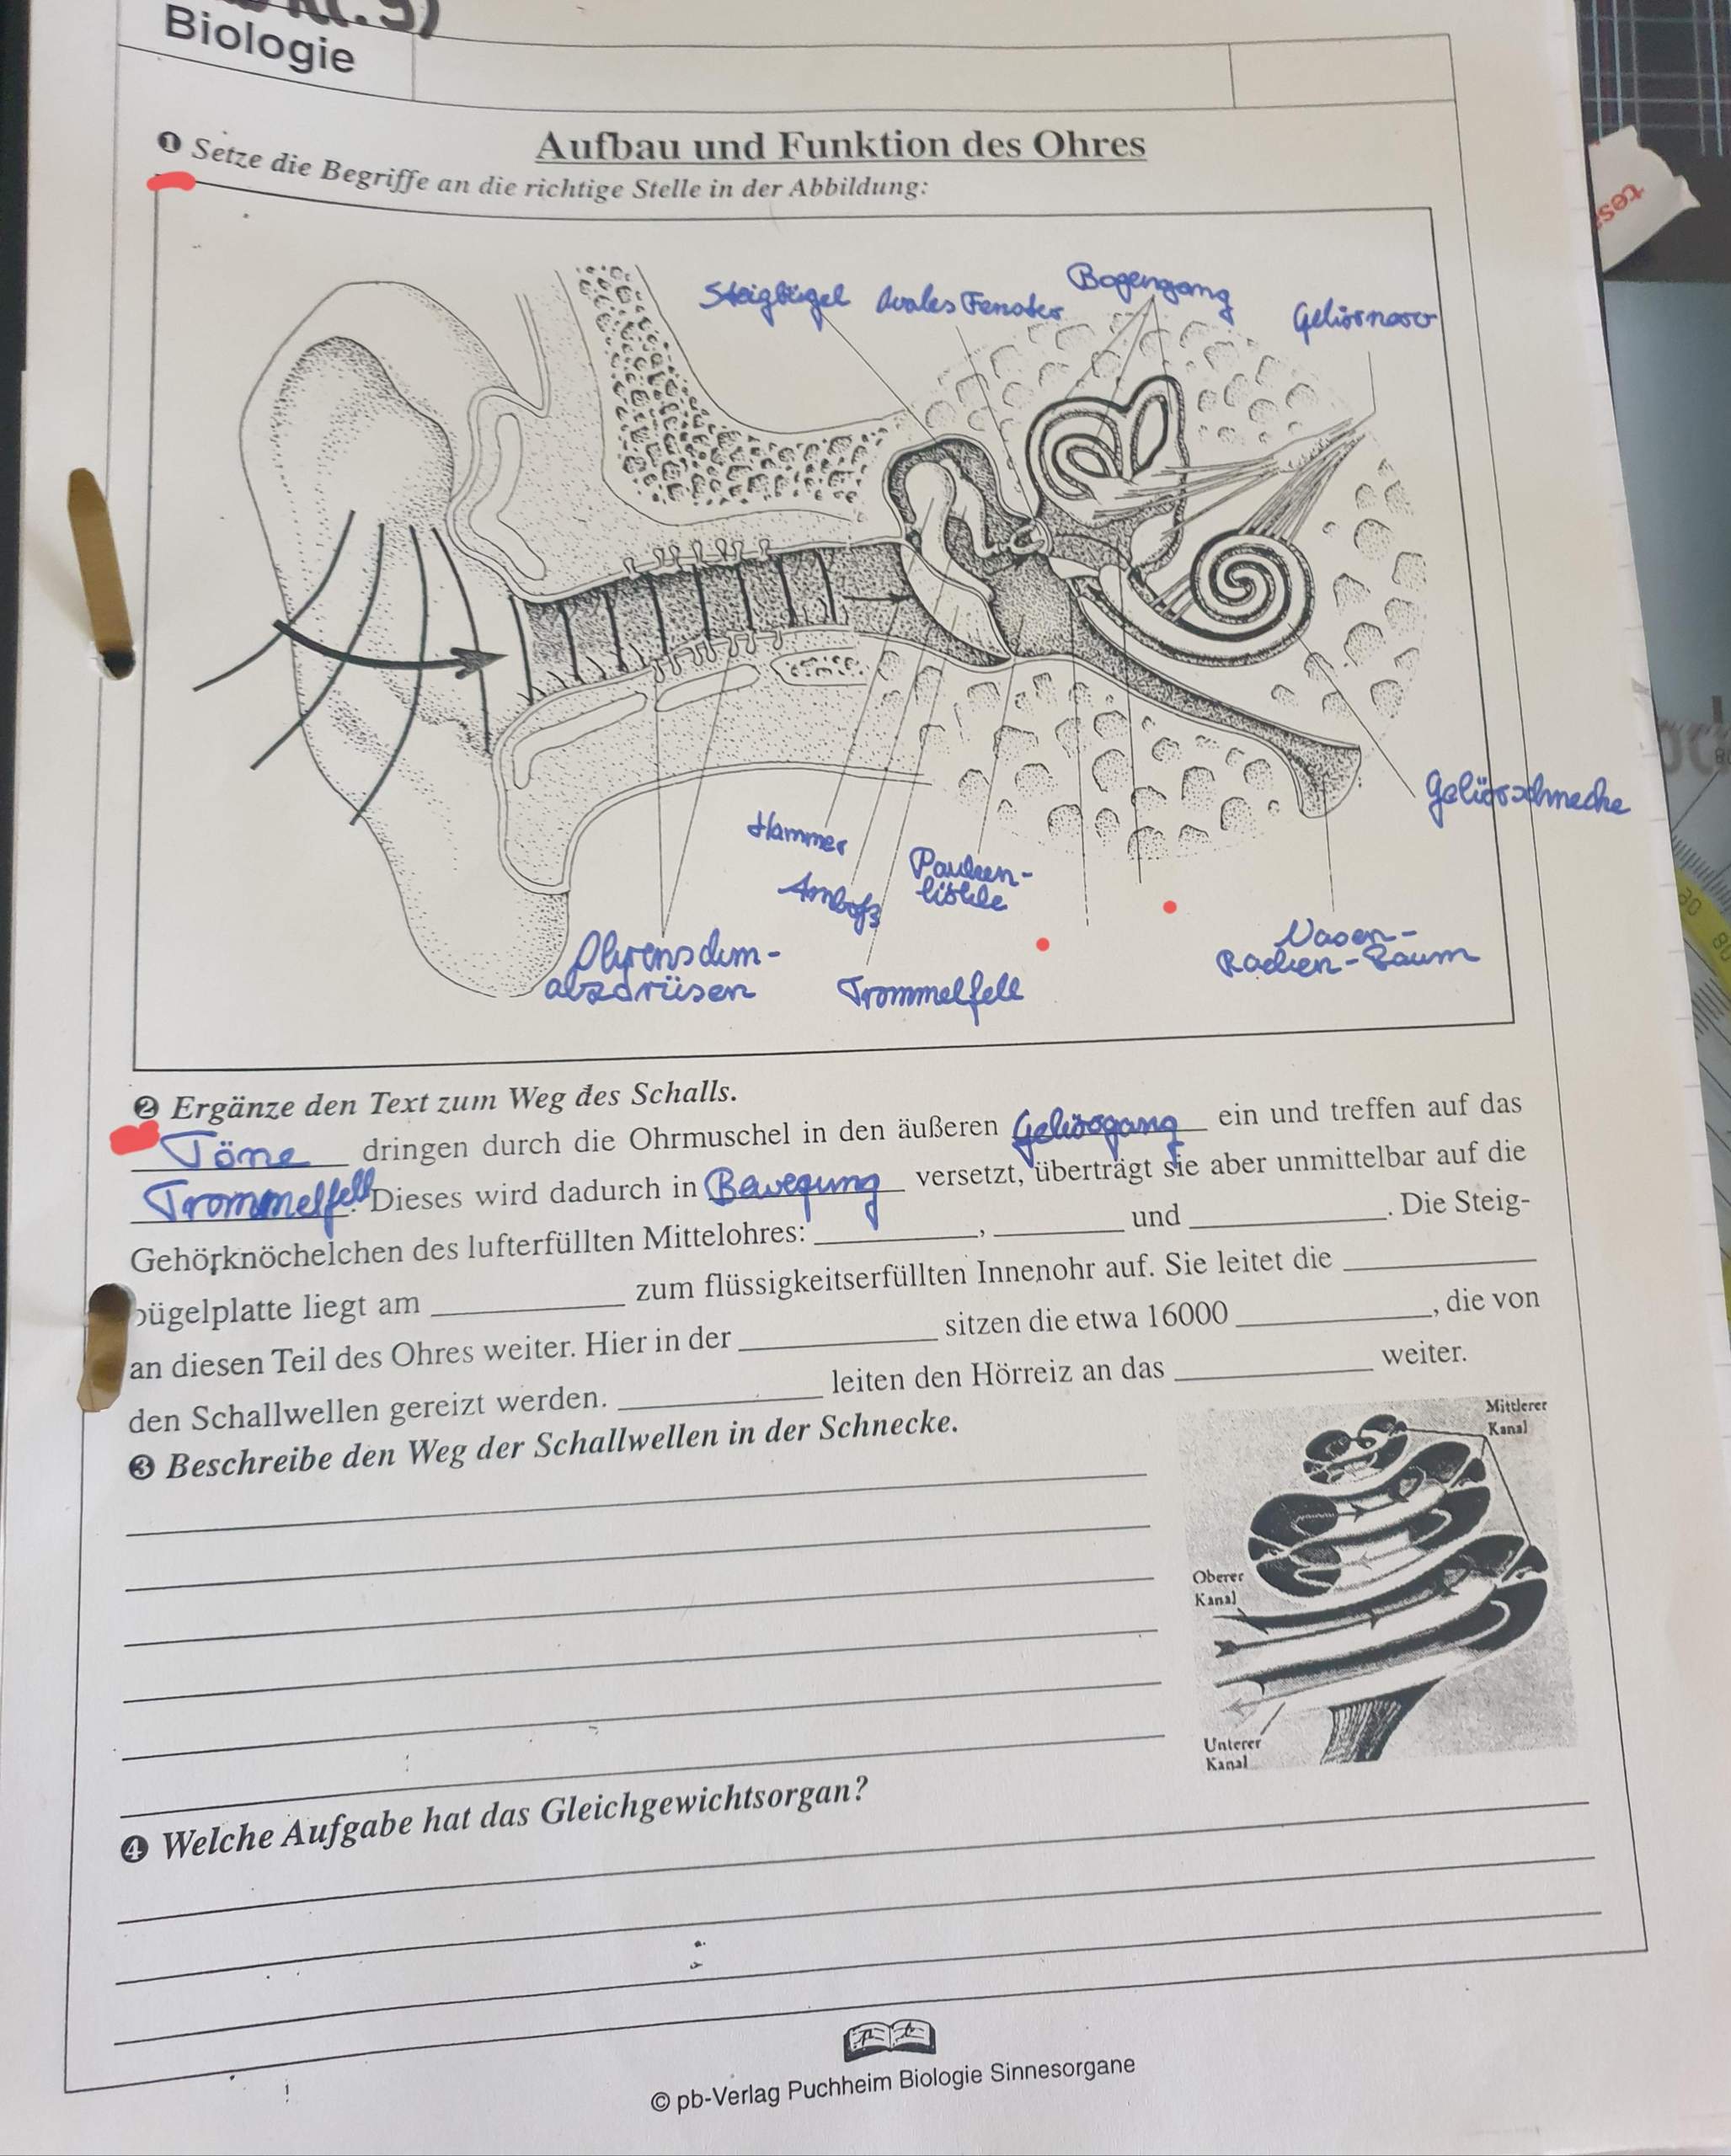 Biologie
Aufbau und Funktion des Ohres
❶ Setze die Begriffe an die richtige Stelle in der Abbildung:
Steigbügel ovales Fenster Bogengang Gehörnerv
Hammer
Amboß
Pauken-
höhle
Gehörschnecke
Ohrenschm-
alzdrüsen
Trommelfell
Nasen-
Rachen-Raum
❷ Ergänze den Text zum Weg des Schalls.
Töne dringen durch die Ohrmuschel in den äußeren Gehörgang ein und treffen auf das
Trommelfell. Dieses wird dadurch in Bewegung versetzt, überträgt sie aber unmittelbar auf die
Gehörknöchelchen des lufterfüllten Mittelohres: __________, __________ und __________. Die Steig-
bügelplatte liegt am __________ zum flüssigkeitserfüllten Innenohr auf. Sie leitet die __________
an diesen Teil des Ohres weiter. Hier in der __________ sitzen die etwa 16000 __________, die von
den Schallwellen gereizt werden. __________ leiten den Hörreiz an das __________ weiter.
❸ Beschreibe den Weg der Schallwellen in der Schnecke.
Mittlerer
Kanal
Oberer
Kanal
Unterer
Kanal
❹ Welche Aufgabe hat das Gleichgewichtsorgan?
© pb-Verlag Puchheim Biologie Sinnesorgane